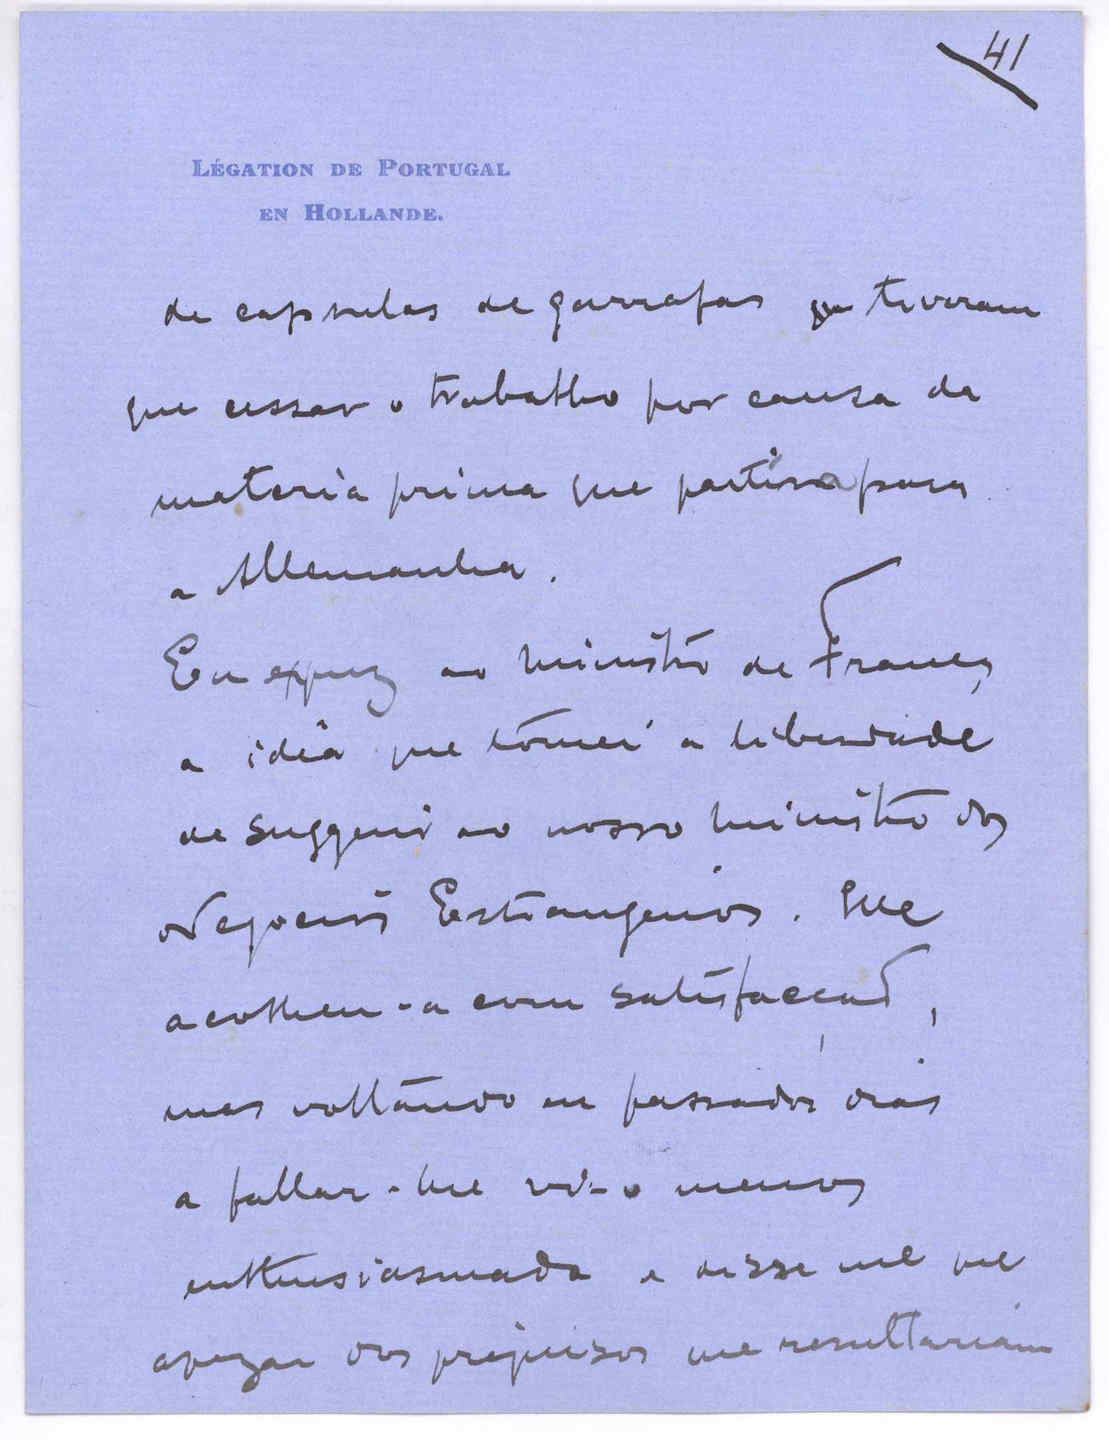 41
LÉGATION DE PORTUGAL
EN HOLLANDE.
de capsulas de garrafas que tiveram
que cessar o trabalho por causa da
materia prima que partira para
a Allemanha.
Eu expuz ao ministro de França
a ideia que tomei a liberdade
de suggerir ao nosso ministro dos
Negocios Estrangeiros. Elle
acolheu-a com satisfacçaõ,
mas voltando eu passados dias
a fallar-lhe vi-o menos
enthusiasmado e disse me que
apezar dos prejuisos que resultariam